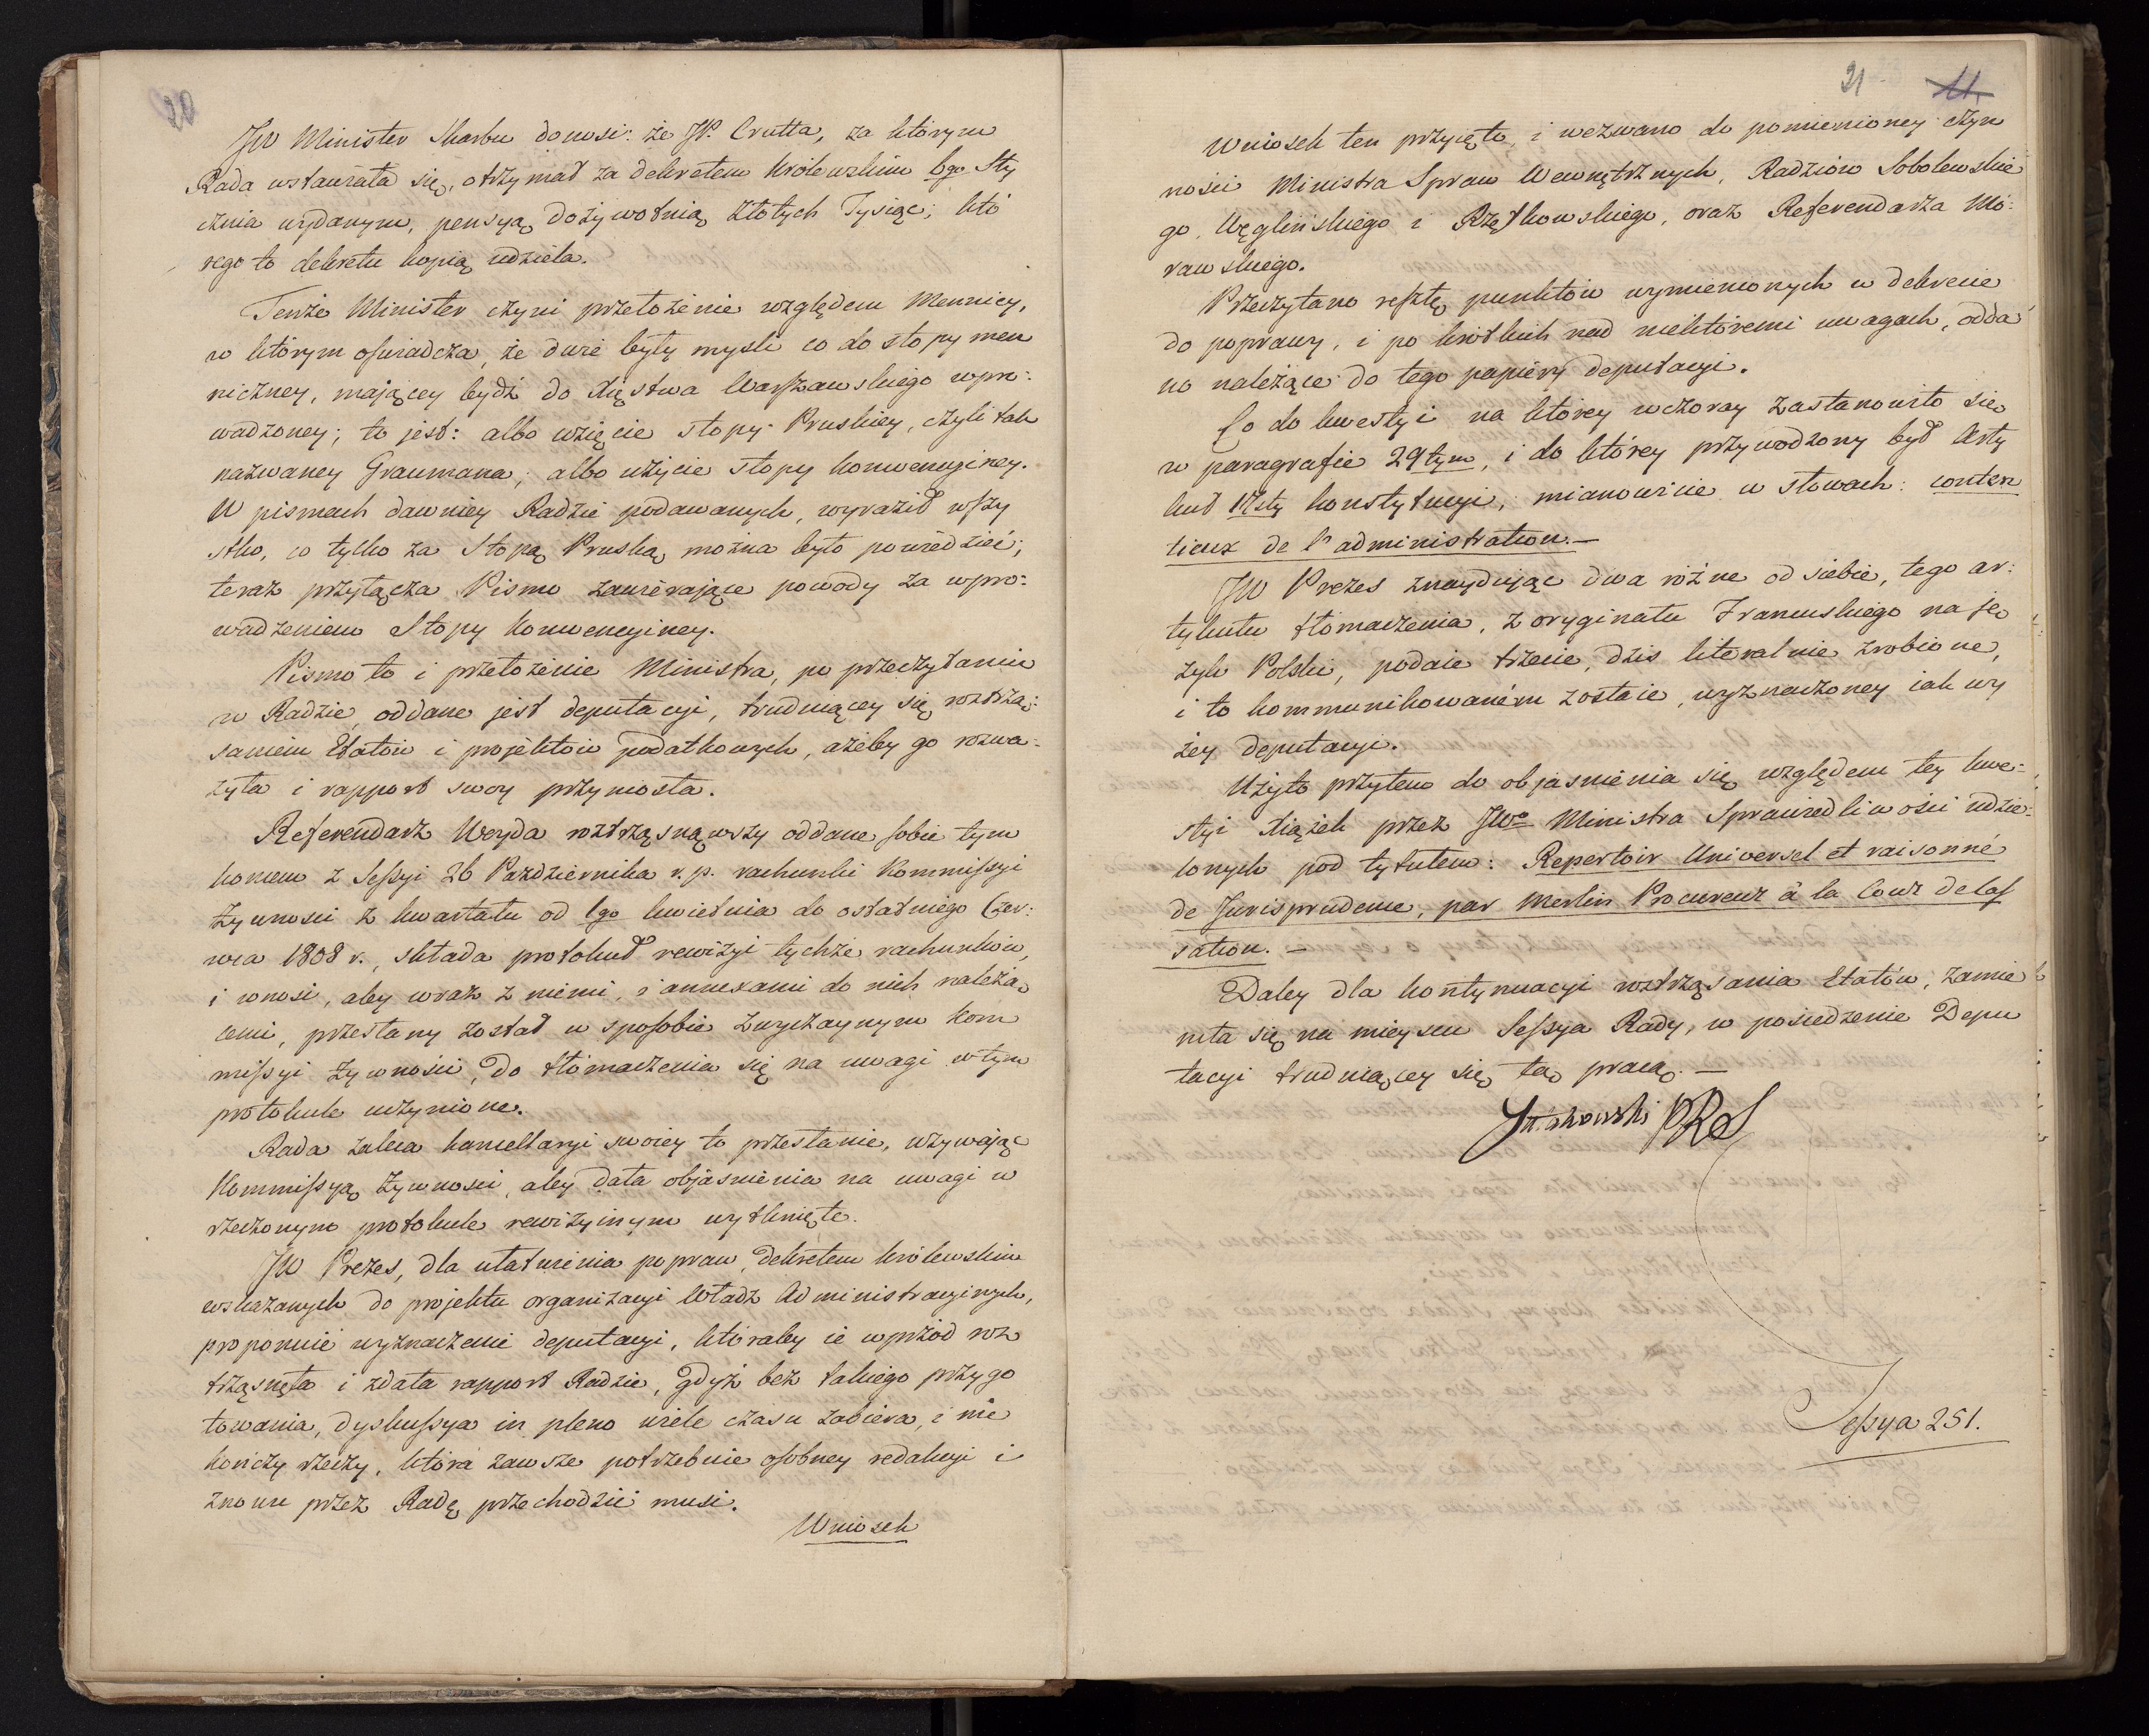 20
JW Minister Skarbu donosi: że JP. Crutta, za którym
Rada wstawiała się, otrzymał za dekretem królewskim 6go Sty
cznia wydanym, pensyą dożywotnią Złotych Tysiąc; któ
rego to dekretu kopią udziela.
Tenże Minister czyni przełożenie względem Mennicy,
w którym oświadcza, że dwie były myśli co do stopy men
niczney, mającey bydź do Xięstwa Warszawskiego wpro:
wadzoney; to jest: albo wzięcie stopy Pruskiey, czyli tak
nazwaney Graumana; albo użycie stopy konwencyiney.
W pismach dawniey Radzie podawanych, wyraził wszy
stko, co tylko za Stopą Pruską można było powiedzieć;
teraz przyłącza Pismo zawierające powody za wpro:
wadzeniem Stopy Konwencyiney.
Pismo to i przełożenie Ministra, po przeczytaniu
w Radzie, oddane jest deputacyi, trudniącey się roztrzą:
saniem Etatów i projektów podatkowych, ażeby go rozwa:
żyła i rapport swoy przyniosła.
Referendarz Woyda roztrząsnąwszy oddane sobie tym
koncem z Sessyi 26 Pazdziernika r. p. rachunki Kommissyi
Żywnosci z kwartału od 1go kwietnia do ostatniego Czer:
wca 1808 r., składa protokuł rewizyi tychże rachunków,
i wnosi, aby wraz z niemi, i annexami do nich należą
cemi, przesłany został w sposobie zwyczaynym Kom
missyi Żywności, do tłomaczenia się na uwagi w tym
protokule uczynione.
Rada zaleca kancellaryi swoiey to przesłanie, wzywając
Kommissyą Żywnosci, aby dała objasnienia na uwagi w
rzeczonym protokule rewizyinym wytknięte.
JW Prezes, dla ułatwienia popraw, dekretem królewskim
wskazanych do projektu organizacyi Władz Administracyinych,
proponuie wyznaczenie deputacyi, któraby ie wprzód roz
trząsnęła i zdała rapport Radzie, gdyż bez takiego przygo
towania, dyskussya in pleno wiele czasu zabiera, i nie
kończy rzeczy, która zawsze potrzebuie osobney redakcyi i
znowu przez Radę przechodzić musi.
Wniosek
21 11.
Wniosek ten przyjęto, i wezwano do pomienioney czyn
ności Ministra Spraw Wewnętrznych, Radziów Sobolewskie
go, Węglińskiego i Rzętkowskiego, oraz Referendarza Mo:
rawskiego.
Przeczytano resztę punktów wymienionych w dekrecie
do poprawy, i po krótkich nad niektóremi uwagach, odda
no należące do tego papiery deputacyi.
Co do kwestyi na którey wczoray zastanowiło się
w paragrafie 29tym, i do którey przywodzony był Arty
kuł 17sty konstytucyi, mianowicie w słowach: conten
tieux de l'administration.—
JW Prezes znaydując dwa różne od siebie, tego ar:
tykułu tłomaczenia, z oryginału Francuskiego na ję
zyk Polski, podaie trzecie, dziś literalnie zrobione,
i to kommunikowaném zostaie, wyznaczoney iak wy
żey deputacyi.
Użyto przytem do objasnienia się względem tey kwe:
styi Xiążek przez JWo Ministra Sprawiedliwości udzie:
lonych pod tytułem: Repertoir Universel et raisonné
de Jurisprudence, par Merlin Procureur à la Cour de Cas
sation.—
Daley dla kontynuacyi roztrząsania Etatów, zamie
niła się na mieyscu Sessya Rady, w posiedzenie Depu
tacyi trudniącey się tą pracą.—
Sessya 251.